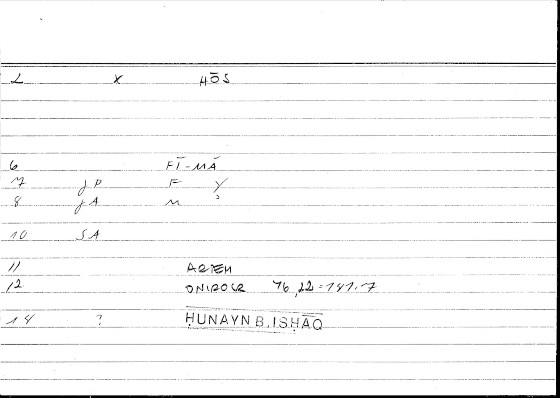 2 x HŌS
6 FĪ-MĀ
7 JP F Y
8 JA M ʾ
10 SA
11 ARTEM
12 ONIROCR 76,22=141.7
14 ? ḤUNAYN B. ISḤĀQ